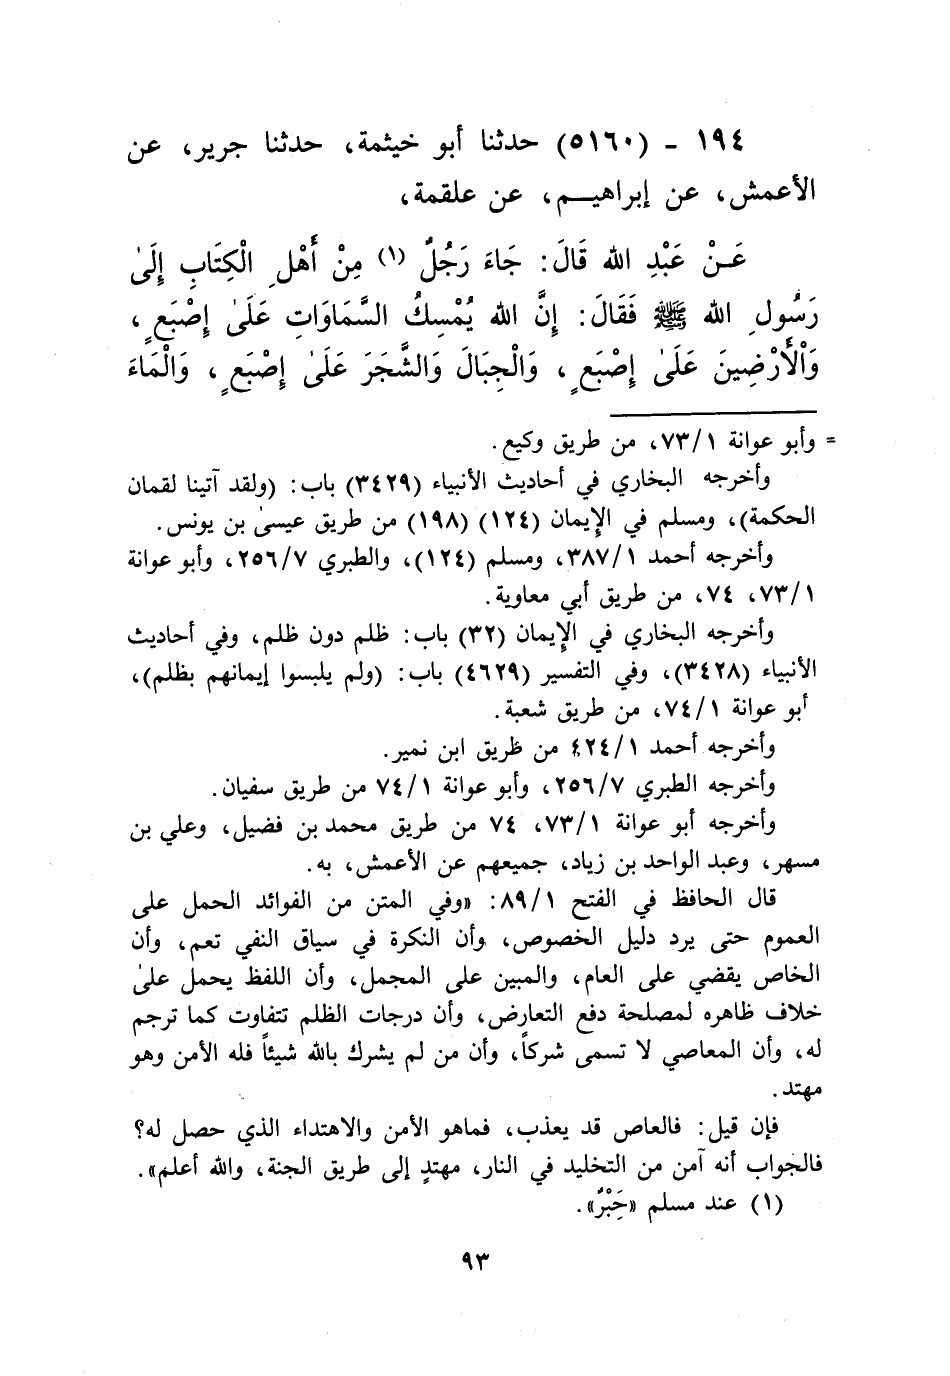 ١٩٤ - (٥١٦٠) حدثنا أبو خيثمة، حدثنا جرير، عن
الأعمش، عن إبراهيم، عن علقمة،
عَنْ عَبْدِ الله قَالَ: جَاءَ رَجُلٌ (١) مِنْ أَهْلِ الْكِتَابِ إِلَىٰ
رَسُولِ الله ﷺ فَقَالَ: إِنَّ الله يُمْسِكُ السَّمَاوَاتِ عَلَىٰ إِصْبَعٍ،
وَالْأَرْضِينَ عَلَىٰ إِصْبَعٍ، وَالْجِبَالَ وَالشَّجَرَ عَلَىٰ إِصْبَعٍ، وَالْمَاءَ
= وأبو عوانة ٧٣/١، من طريق وكيع.
وأخرجه البخاري في أحاديث الأنبياء (٣٤٢٩) باب: (ولقد آتينا لقمان
الحكمة)، ومسلم في الإيمان (١٢٤) (١٩٨) من طريق عيسىٰ بن يونس.
وأخرجه أحمد ٣٨٧/١، ومسلم (١٢٤)، والطبري ٢٥٦/٧، وأبو عوانة
٧٣/١، ٧٤، من طريق أبي معاوية.
وأخرجه البخاري في الإيمان (٣٢) باب: ظلم دون ظلم، وفي أحاديث
الأنبياء (٣٤٢٨)، وفي التفسير (٤٦٢٩) باب: (ولم يلبسوا إيمانهم بظلم)،
أبو عوانة ٧٤/١، من طريق شعبة.
وأخرجه أحمد ٤٢٤/١ من طريق ابن نمير.
وأخرجه الطبري ٢٥٦/٧، وأبو عوانة ٧٤/١ من طريق سفيان.
وأخرجه أبو عوانة ٧٣/١، ٧٤ من طريق محمد بن فضيل، وعلي بن
مسهر، وعبد الواحد بن زياد، جميعهم عن الأعمش، به.
قال الحافظ في الفتح ٨٩/١: «وفي المتن من الفوائد الحمل على
العموم حتى يرد دليل الخصوص، وأن النكرة في سياق النفي تعم، وأن
الخاص يقضي على العام، والمبين على المجمل، وأن اللفظ يحمل علىٰ
خلاف ظاهره لمصلحة دفع التعارض، وأن درجات الظلم تتفاوت كما ترجم
له، وأن المعاصي لا تسمى شركاً، وأن من لم يشرك بالله شيئاً فله الأمن وهو
مهتد.
فإن قيل: فالعاص قد يعذب، فماهو الأمن والاهتداء الذي حصل له؟
فالجواب أنه آمن من التخليد في النار، مهتدٍ إلى طريق الجنة، والله أعلم».
(١) عند مسلم «حَبْرٌ».
٩٣